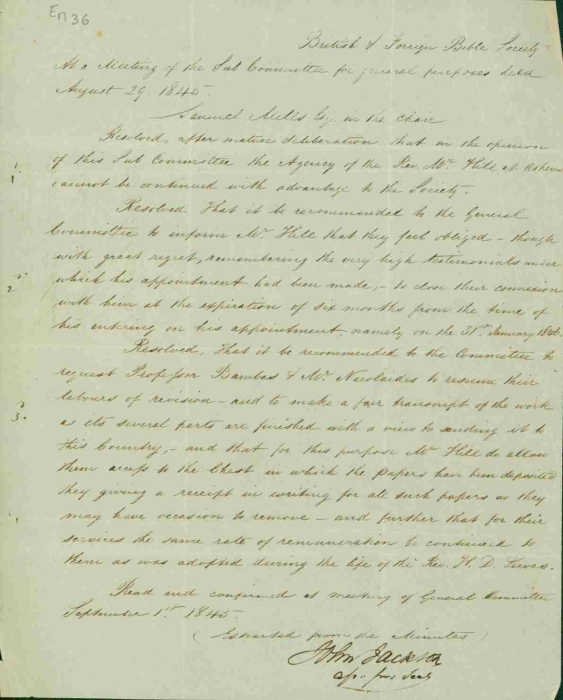 En 36
British & Foreign Bible Society
At a Meeting of the Sub Committee for general purposes held
August 29. 1845
Samuel Mills Esq in the Chair
Resolved, after mature deliberation that in the opinion
1. of this Sub Committee the Agency of the Rev. Mr. Hill at Athens
cannot be continued with advantage to the Society.
Resolved That it be recommended to the General
Committee to inform Mr. Hill that they feel obliged – though
with great regret, remembering the very high testimonials under
2. which his appointment had been made, – to close their connexion
with him at the expiration of six months from the time of
his entering on his appointment, namely on the 31st January 1846.
Resolved, That it be recommended to the Committee to
request Professor Bambas & Mr. Nicolaides to resume their
labours of revision – and to make a fair transcript of the work
3. as its several parts are finished with a view to sending it to
this Country, – and that for this purpose Mr Hill do allow
them access to the Chest in which the papers have been deposited
they giving a receipt in writing for all such papers as they
may have occasion to remove – and further that for their
services the same rate of remuneration be continued to
them as was adopted during the life of the Rev. H. D. Leeves.
Read and confirmed at meeting of General Committee
September 1st 1845.
(Extracted from the Minutes)
John Jackson